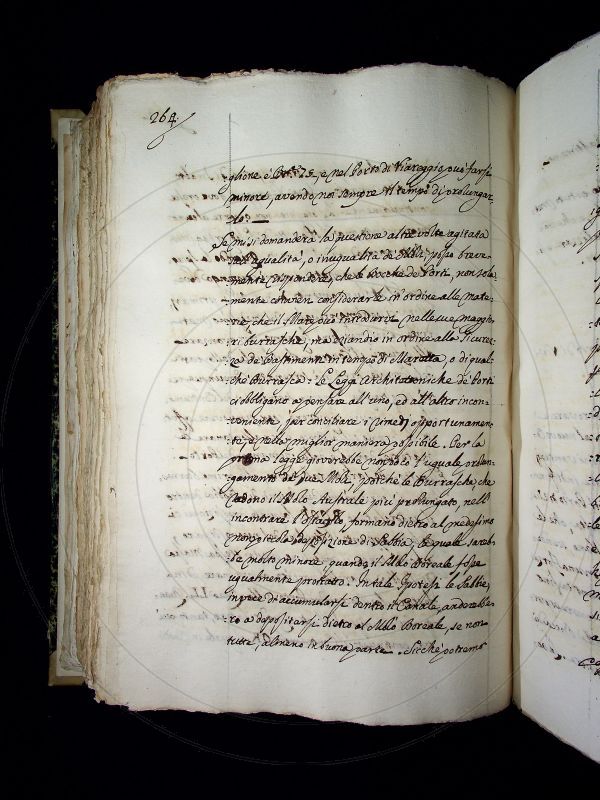 264.
glione è Br. 75, e nel Porto di Viareggio può farsi
minore, avendo noi sempre il tempo di prolungar-
lo. —
Se mi si domanderà la questione altre volte agitata
dell'egualità, o inugualità de' Moli, posso breve-
mente rispondere, che le bocche de' Porti, non sola-
mente convien considerarle in ordine alle mate-
rie, che il Mare può introdurre nelle sue maggio-
ri burrasche, ma eziandio in ordine alla sicurez-
za de' Bastimenti in tempo di Maretta, o di qual-
che Burrasca: Le Leggi Architettoniche de' Porti
ci obbligano a pensare all'uno, ed all'altro incon-
veniente, per conciliare i rimedj opportunamen-
te, e nella miglior maniera possibile. Per la
prima legge gioverebbe non poco l'uguale prolun-
gamento de' due Moli, poichè le Burrasche, che
radono il Molo Australe più prolungato, nell'
incontrare l'ostacolo, formano dietro al medesimo
non piccola deposizione di Sabbia, la quale sareb-
be molto minore, quando il Molo Boreale fosse
ugualmente protratto. In tale Ipotesi le Sabbie,
invece di accumularsi dentro il Canale, anderebbe-
ro a depositarsi dietro al Molo Boreale, se non
tutte, almeno in buona parte. Sicchè potremo